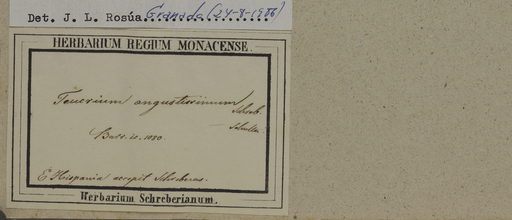 Det. J. L. Rosúa Granada (24-8-1986)
HERBARIUM REGIUM MONACENSE.
Teucrium angustissimum
Schreb.
É Hispania accepit Schreberus.
Herbarium Schreberianum.